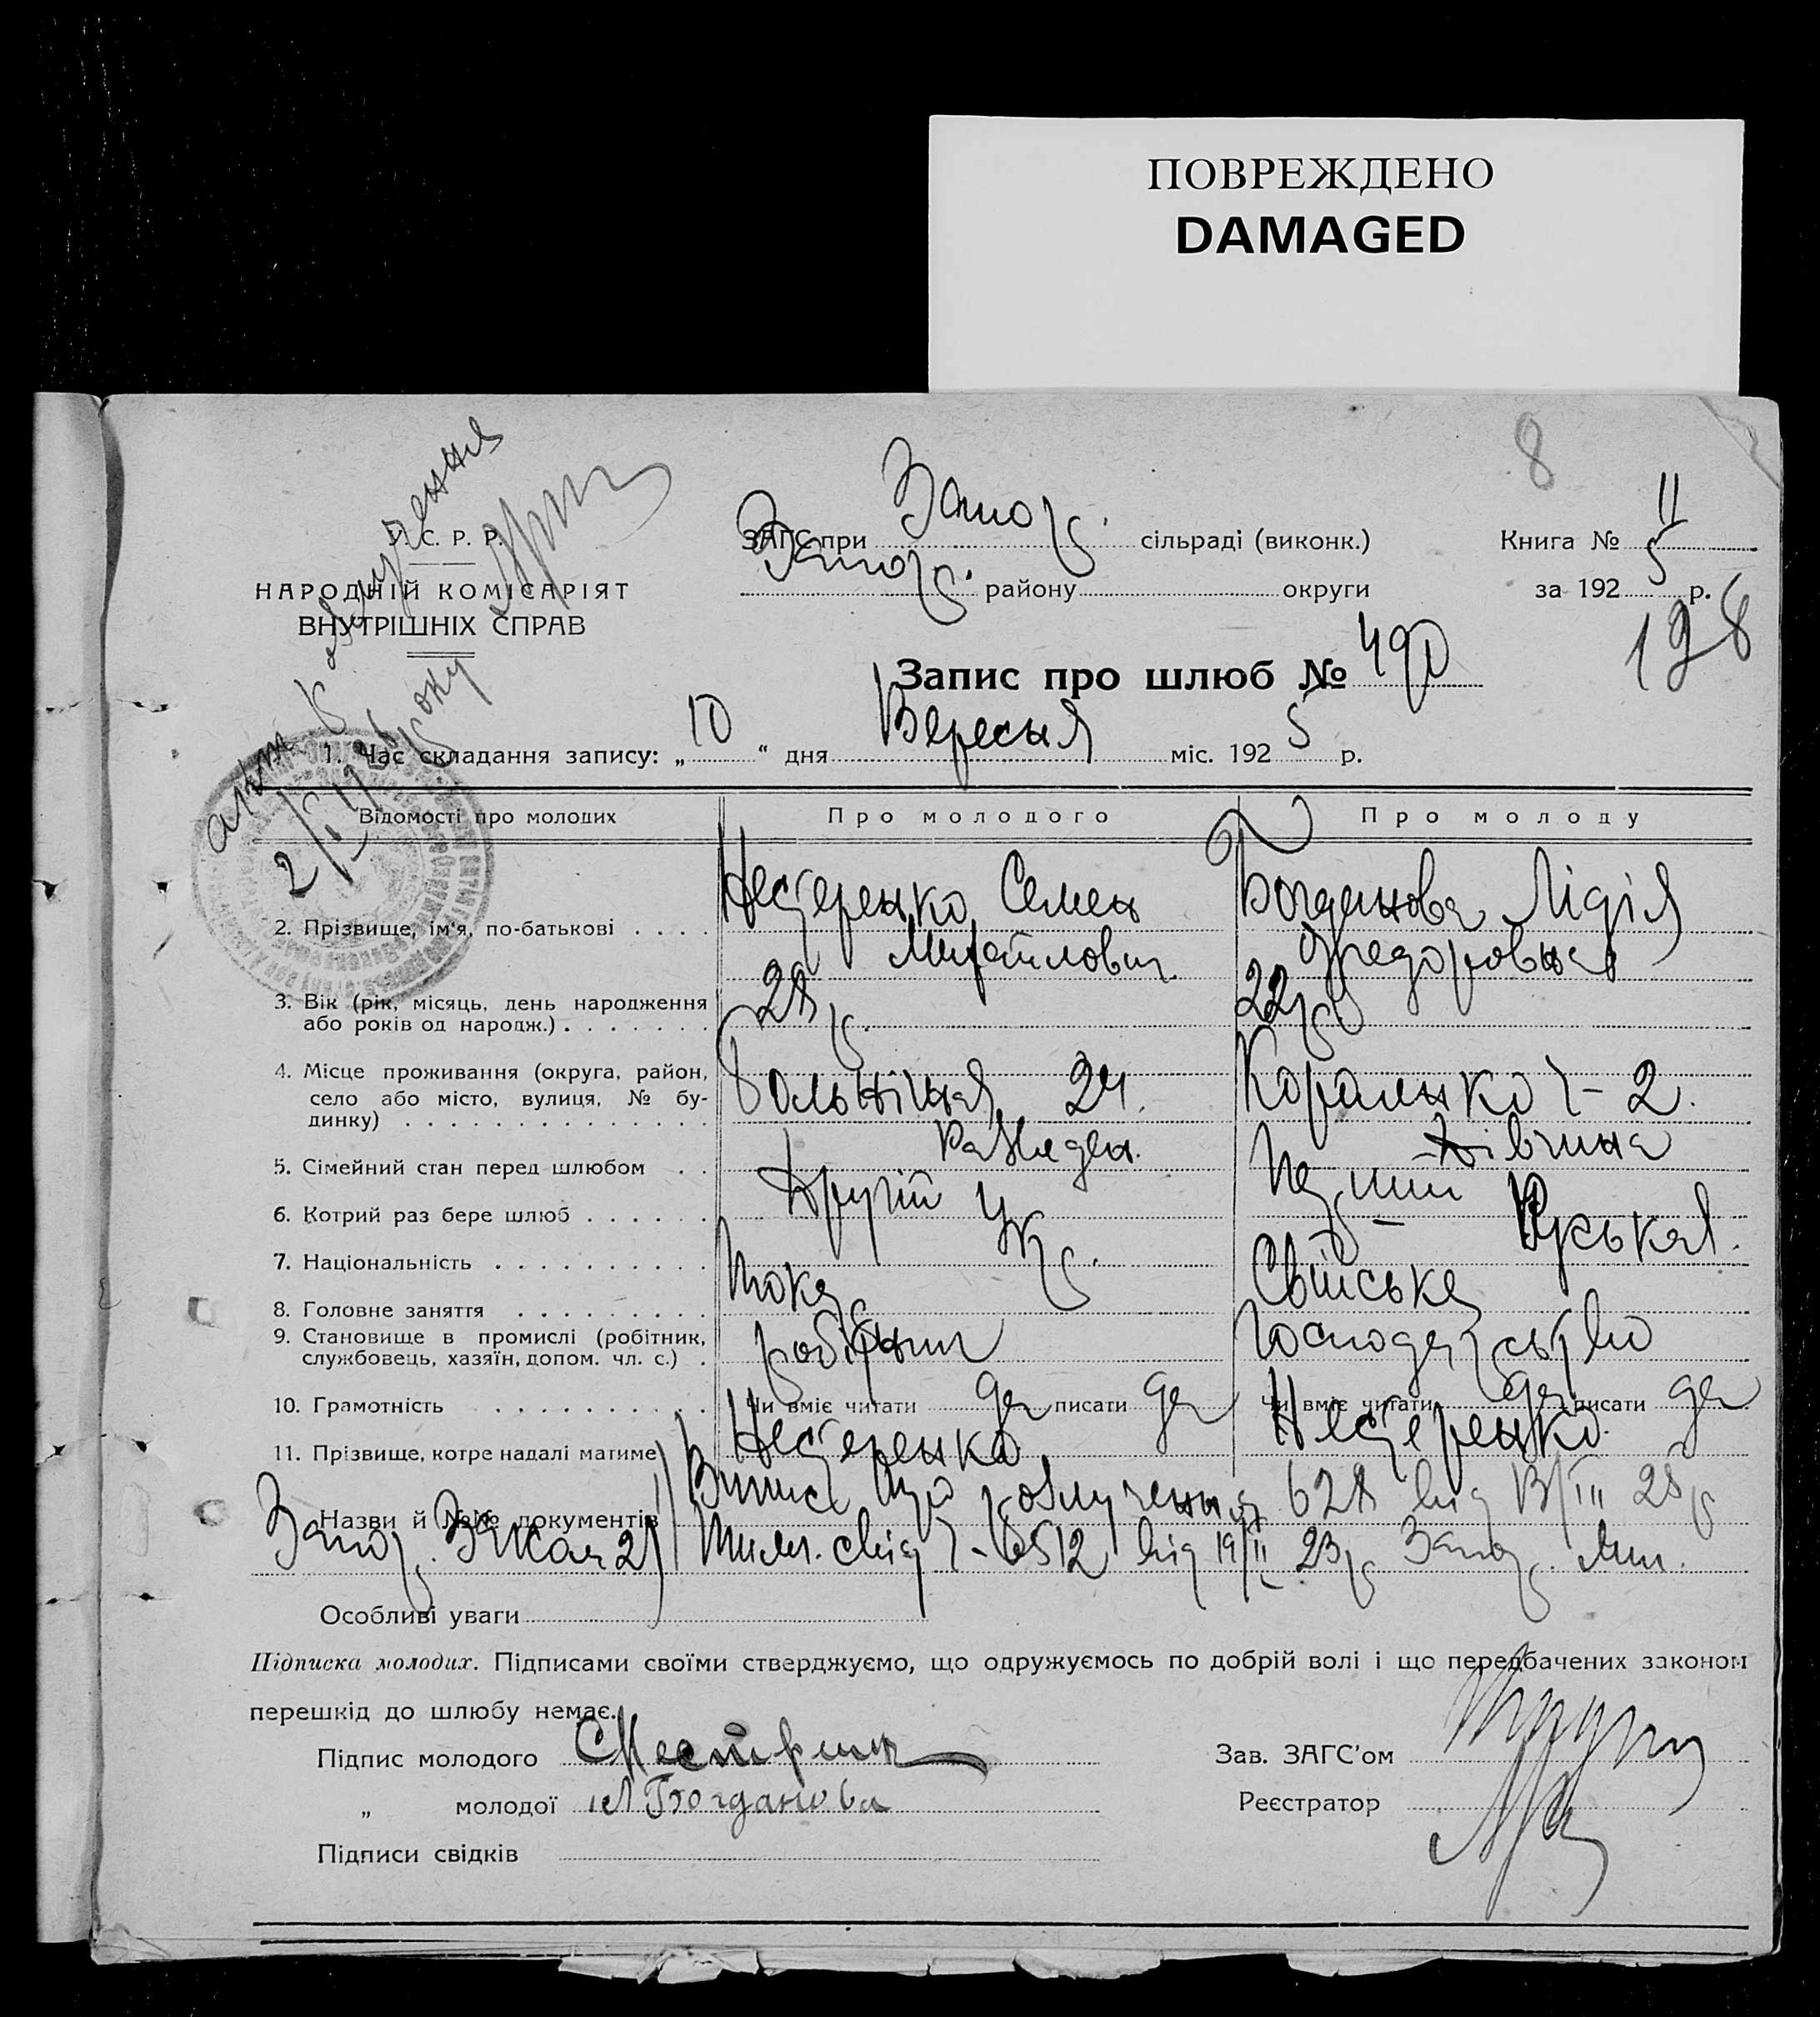 ПОВРЕЖДЕНО
DAMAGED
8
У. С. Р. Р.
НАРОДНІЙ КОМІСАРІЯТ
ВНУТРІШНІХ СПРАВ
ЗАГС при Запор. сільраді (виконк.)
Запор. району округи
Книга № II
за 1925 р.
128
Запис про шлюб № 490
1. Час складання запису: „10“ дня Вересня міс. 1925 р.
Відомості про молодих Про молодого Про молоду
2. Прізвище, ім'я, по-батькові . . . . Нестеренко Семен Михайлович Богданова Лідія Федоровна
3. Вік (рік, місяць, день народження
або років од народж.) . . . . . . . 28 р. 22 р.
4. Місце проживання (округа, район,
село або місто, вулиця, № бу-
динку) . . . . . . . . . . . . . . Больнічная 24. 2.
5. Сімейний стан перед шлюбом . . Разведен. Дівчина
6. Котрий раз бере шлюб . . . . . . Другій
7. Національність . . . . . . . . . . Укр. Руськая.
8. Головне заняття . . . . . . . . . Токар Свійське
9. Становище в промислі (робітник,
службовець, хазяїн, допом. чл. с.) . робітник господарство
10. Грамотність . . . . . . . . . . Чи вміє читати да писати да Чи вміє читати да писати да
11. Прізвище, котре надалі матиме Нестеренко Нестеренко.
Назви й №№ документів Випис про розлучення 628 від
Запор. 6512 від 19/II 23 р. Запор. Мил.
Особливі уваги
Підписка молодих. Підписами своїми стверджуємо, що одружуємось по добрій волі і що передбачених законом
перешкід до шлюбу немає.
Підпис молодого
„ молодої Л Богданова
Підписи свідків
Зав. ЗАГС'ом
Реєстратор
акт розлучення
року